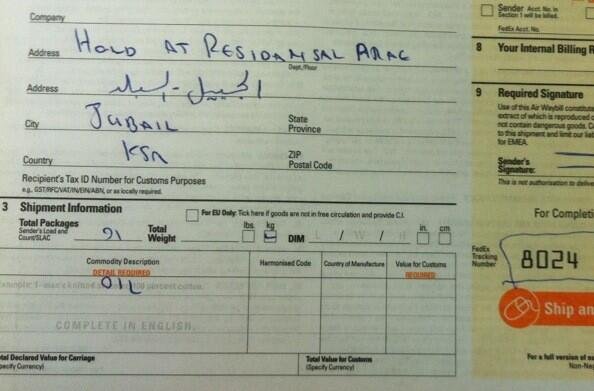 Company
Sender Acct. No. in
Section 1 will be billed.
FedEx Acct. No.
Address HOLD AT RESIDANSAL ARAC
Dept./Floor
8 Your Internal Billing R
Address الجبيل -
City JUBAIL
State
Province
9 Required Signature
Use of this Air Waybill constitute
extract of which is reproduced o
not contain dangerous goods. C
to this shipment and limit our liab
for EMEA.
Country KSA
ZIP
Postal Code
Sender's
Signature:
This is not authorisation to delive
Recipient's Tax ID Number for Customs Purposes
e.g., GST/RFC/VAT/IN/EIN/ABN, or as locally required.
3 Shipment Information
For EU Only: Tick here if goods are not in free circulation and provide C.I.
For Completi
Total Packages
Sender's Load and
Count/SLAC
Total
Weight
lbs. kg
DIM L / W / H
in. cm
FedEx
Tracking
Number
8024
Commodity Description
DETAIL REQUIRED
Harmonised Code
Country of Manufacture
Value for Customs
REQUIRED
OIL
COMPLETE IN ENGLISH.
Ship an
tal Declared Value for Carriage
pecify Currency)
Total Value for Customs
(Specify Currency)
For a full version of
Non-Neg